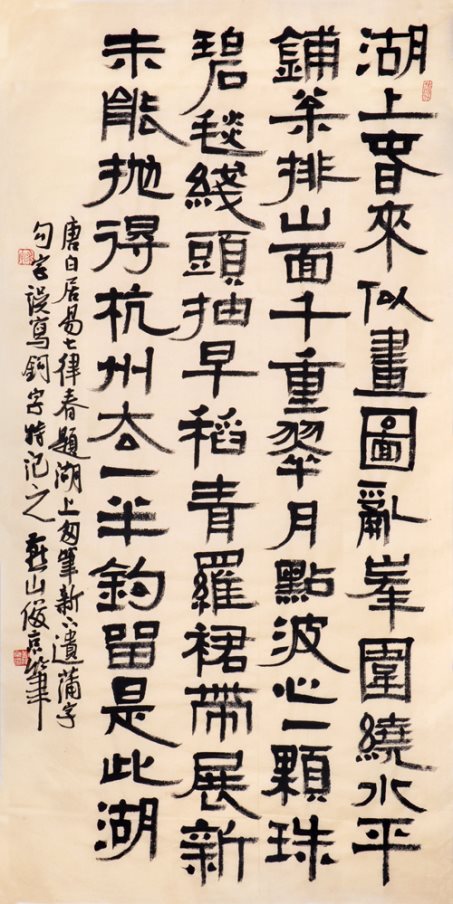 湖上春來似畫圖亂峯圍繞水平
鋪枀排山面千重翠月點波心一顆珠
碧毯綫頭抽早稻青羅裙帶展新
未能抛得杭州去一半鈎留是此湖
唐白居易七律春題湖上匆筆新下遺蒲字
勾字误寫鈎字特記之燕山俊京筆